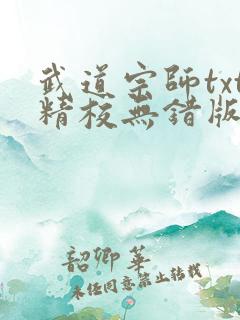 武道宗師txt
精校無錯版
韶卿華
未任同意禁止転載